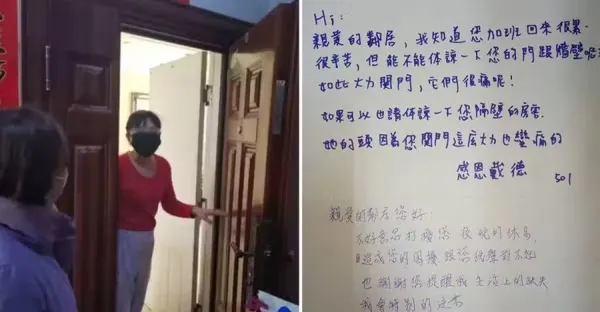 Hi:
親愛的鄰居,我知道您加班回來很累.
很辛苦,但能不能体諒一下您的門跟牆壁呢
如此大力関門,它們很痛呢!
如果可以也請体諒一下您隔壁的房客
她的頭因為您関門這麼大力也蠻痛的
感恩戴德
501
親愛的鄰居您好:
不好意思打擾您 夜晚的休息,
且造成您的困擾 跟您說聲對不起
也謝謝您提醒我 生活上的缺失
我會特別的注意